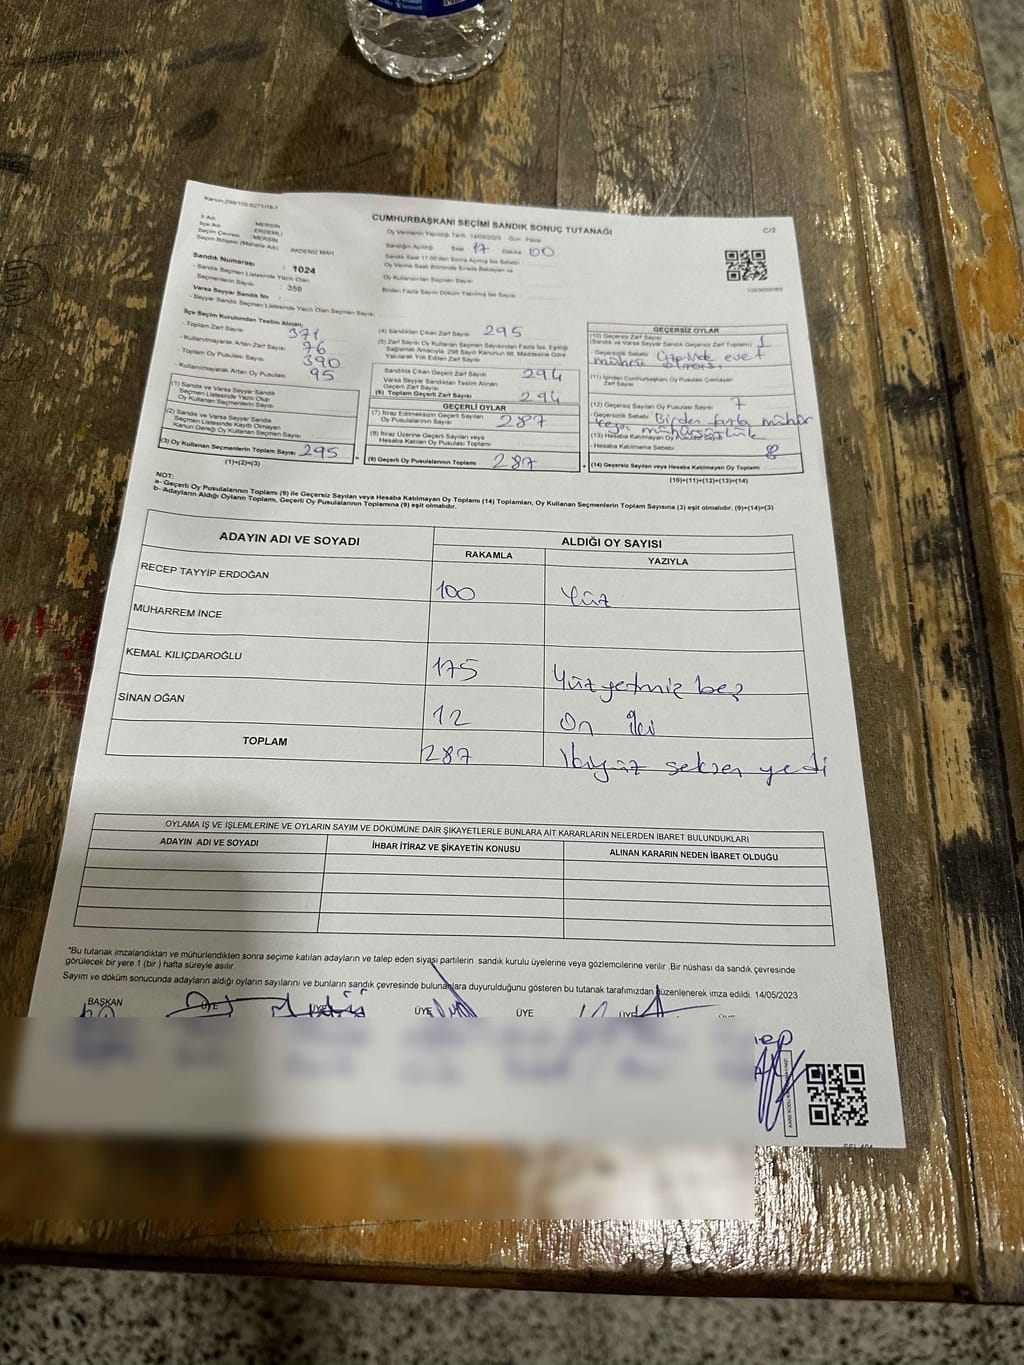 Kanun:298/105;6271/18-1
CUMHURBAŞKANI SEÇİMİ SANDIK SONUÇ TUTANAĞI
C/2
İl Adı : MERSİN
İlçe Adı : ERDEMLİ
Seçim Çevresi : MERSİN
Seçim Bölgesi (Mahalle Adı) : AKDENİZ MAH
Oy Vermenin Yapıldığı Tarih: 14/05/2023 Gün: Pazar
Sandığın Açıldığı Saat 17 Dakika 00
Sandık Saat 17:00'den Sonra Açılmış İse Sebebi
Oy Verme Saati Bitiminde Sırada Bekleyen ve
Oy Kullandırılan Seçmen Sayısı
Birden Fazla Sayım Döküm Yapılmış İse Sayısı
Sandık Numarası : 1024
- Sandık Seçmen Listesinde Yazılı Olan
Seçmenlerin Sayısı : 350
Varsa Seyyar Sandık No :
- Seyyar Sandık Seçmen Listesinde Yazılı Olan Seçmen Sayısı:
İlçe Seçim Kurulundan Teslim Alınan;
- Toplam Zarf Sayısı 371
- Kullanılmayarak Artan Zarf Sayısı 76
- Toplam Oy Pusulası Sayısı 390
- Kullanılmayarak Artan Oy Pusulası 95
(1) Sandık ve Varsa Seyyar Sandık
Seçmen Listesinde Yazılı Olup
Oy Kullanan Seçmenlerin Sayısı
(2) Sandık ve Varsa Seyyar Sandık
Seçmen Listesinde Kayıtlı Olmayan
Kanun Gereği Oy Kullanan Seçmen Sayısı
(3) Oy Kullanan Seçmenlerin Toplam Sayısı 295
(1)+(2)=(3)
(4) Sandıktan Çıkan Zarf Sayısı 295
(5) Zarf Sayısı Oy Kullanan Seçmen Sayısından Fazla İse, Eşitliği
Sağlamak Amacıyla; 298 Sayılı Kanunun 98. Maddesine Göre
Yakılarak Yok Edilen Zarf Sayısı
Sandıkta Çıkan Geçerli Zarf Sayısı 294
Varsa Seyyar Sandıktan Teslim Alınan
Geçerli Zarf Sayısı
(6) Toplam Geçerli Zarf Sayısı 294
GEÇERLİ OYLAR
(7) İtiraz Edilmeksizin Geçerli Sayılan
Oy Pusulalarının Sayısı 287
(8) İtiraz Üzerine Geçerli Sayılan veya
Hesaba Katılan Oy Pusulası Toplamı
(9) Geçerli Oy Pusulalarının Toplamı 287
GEÇERSİZ OYLAR
(10) Geçersiz Zarf Sayısı
(Sandık ve Varsa Seyyar Sandık Geçersiz Zarf Toplamı) 1
- Geçersizlik Sebebi Üzerinde evet
mührü olması.
(11) İçinden Cumhurbaşkanı Oy Pusulası Çıkmayan
Zarf Sayısı
(12) Geçersiz Sayılan Oy Pusulası Sayısı 7
- Geçersizlik Sebebi Birden fazla mühür
veya mühürsüzlük
(13) Hesaba Katılmayan Oy Pusulası Sayısı
Hesaba Katılmama Sebebi
(14) Geçersiz Sayılan veya Hesaba Katılmayan Oy Toplamı 8
(10)+(11)+(12)+(13)=(14)
NOT:
a- Geçerli Oy Pusulalarının Toplamı (9) ile Geçersiz Sayılan veya Hesaba Katılmayan Oy Toplamı (14) Toplamları, Oy Kullanan Seçmenlerin Toplam Sayısına (3) eşit olmalıdır. (9)+(14)=(3)
b- Adayların Aldığı Oyların Toplamı, Geçerli Oy Pusulalarının Toplamına (9) eşit olmalıdır.
ADAYIN ADI VE SOYADI
ALDIĞI OY SAYISI
RAKAMLA YAZIYLA
RECEP TAYYİP ERDOĞAN 100 Yüz
MUHARREM İNCE
KEMAL KILIÇDAROĞLU 175 Yüz yetmiş beş
SİNAN OĞAN 12 On iki
TOPLAM 287 İkiyüz seksen yedi
OYLAMA İŞ VE İŞLEMLERİNE VE OYLARIN SAYIM VE DÖKÜMÜNE DAİR ŞİKAYETLERLE BUNLARA AİT KARARLARIN NELERDEN İBARET BULUNDUKLARI
ADAYIN ADI VE SOYADI İHBAR İTİRAZ VE ŞİKAYETİN KONUSU ALINAN KARARIN NEDEN İBARET OLDUĞU
*Bu tutanak imzalandıktan ve mühürlendikten sonra seçime katılan adayların ve talep eden siyasi partilerin sandık kurulu üyelerine veya gözlemcilerine verilir .Bir nüshası da sandık çevresinde
görülecek bir yere 1 (bir ) hafta süreyle asılır.
Sayım ve döküm sonucunda adayların aldığı oyların sayılarını ve bunların sandık çevresinde bulunanlara duyurulduğunu gösteren bu tutanak tarafımızdan düzenlenerek imza edildi. 14/05/2023
BAŞKAN ÜYE ÜYE ÜYE ÜYE ÜYE